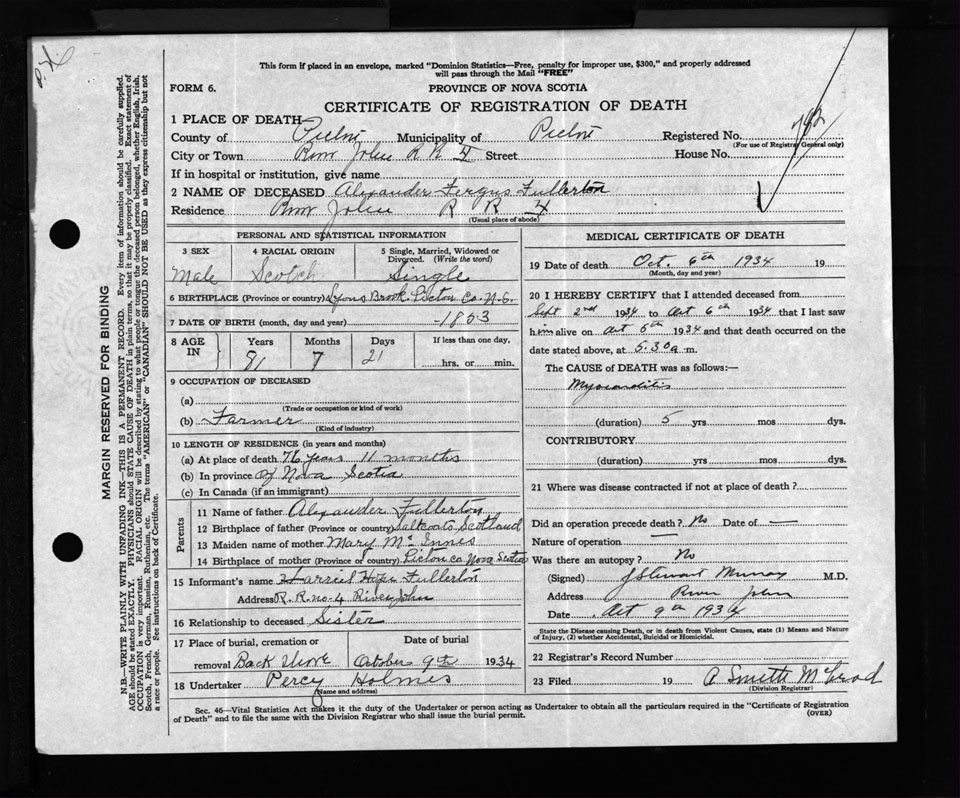 P. X.
This form if placed in an envelope, marked "Dominion Statistics—Free, penalty for improper use, $300," and properly addressed
will pass through the Mail "FREE"
FORM 6.
PROVINCE OF NOVA SCOTIA
CERTIFICATE OF REGISTRATION OF DEATH
1 PLACE OF DEATH—
County of Pictou Municipality of Pictou Registered No. 792
(For use of Registrar General only)
City or Town River John R R 4 Street House No.
If in hospital or institution, give name
2 NAME OF DECEASED Alexander Fergus Fullerton
Residence River John R R 4
(Usual place of abode)
PERSONAL AND STATISTICAL INFORMATION
3 SEX 4 RACIAL ORIGIN 5 Single, Married, Widowed or
Divorced. (Write the word)
Male Scotch Single
6 BIRTHPLACE (Province or country) Lyons Brook Pictou Co. N.S.
7 DATE OF BIRTH (month, day and year) 1853
8 AGE IN Years Months Days If less than one day,
81 7 21 hrs. or min.
9 OCCUPATION OF DECEASED
(a)
(Trade or occupation or kind of work)
(b) Farmer
(Kind of industry)
10 LENGTH OF RESIDENCE (in years and months)
(a) At place of death 76 years 11 months
(b) In province of Nova Scotia
(c) In Canada (if an immigrant)
Parents
11 Name of father Alexander Fullerton
12 Birthplace of father (Province or country) Saltcoats Scotland
13 Maiden name of mother Mary McInnes
14 Birthplace of mother (Province or country) Pictou co Nova Scotia
15 Informant's name Harriet Hope Fullerton
Address R. R. no 4 River John
16 Relationship to deceased Sister
17 Place of burial, cremation or Date of burial
removal Back Shore October 9th 1934
18 Undertaker Percy Holmes
(Name and address)
MEDICAL CERTIFICATE OF DEATH
19 Date of death Oct. 6th 1934 19
(Month, day and year)
20 I HEREBY CERTIFY that I attended deceased from
Sept 2nd 1934 to Oct 6th 1934 that I last saw
him alive on Oct 5th 1934 and that death occurred on
date stated above, at 5.30 a m.
The CAUSE OF DEATH was as follows:—
Myocarditis
(duration) 5 yrs mos dys.
CONTRIBUTORY
(duration) yrs mos dys.
21 Where was disease contracted if not at place of death?
Did an operation precede death? No Date of —
Nature of operation —
Was there an autopsy? No
(Signed) J Stewart Murray M.D.
Address River John
Date Oct 9th 1934
State the Disease causing Death, or in death from Violent Causes, state (1) Means and Nature
of Injury, (2) whether Accidental, Suicidal or Homicidal.
22 Registrar's Record Number
23 Filed 19
(Division Registrar)
Sec. 46—Vital Statistics Act makes it the duty of the Undertaker or person acting as Undertaker to obtain all the particulars required in the "Certificate of Registration
of Death" and to file the same with the Division Registrar who shall issue the burial permit.
(OVER)
MARGIN RESERVED FOR BINDING
N.B.—WRITE PLAINLY WITH UNFADING INK—THIS IS A PERMANENT RECORD. Every item of information should be carefully supplied.
AGE should be stated EXACTLY. PHYSICIANS should STATE CAUSE OF DEATH in plain terms, so that it may be properly classified. Exact statement of
OCCUPATION is very important. RACIAL ORIGIN will be described by stating to what people or tongue the deceased person belonged, whether English, Irish,
Scotch, French, German, Russian, Ruthenian, etc. The terms "AMERICAN" or "CANADIAN" SHOULD NOT BE USED as they express citizenship but not
a race or people. See instructions on back of Certificate.